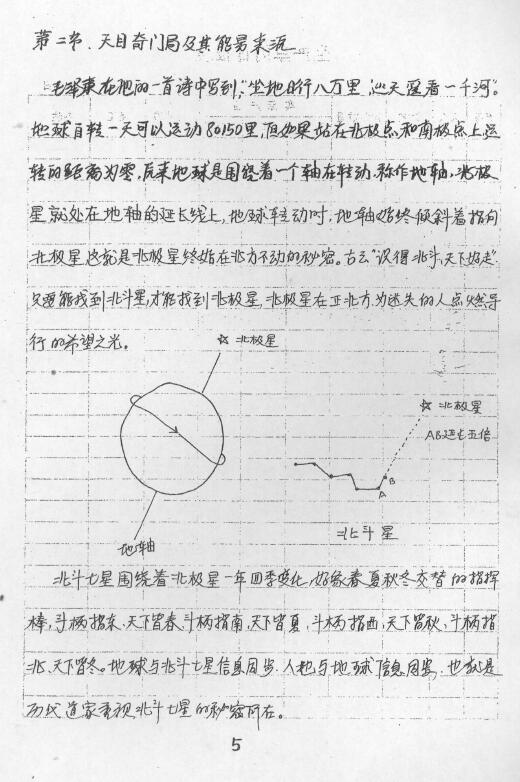 第二节、天目奇门局及其能易来源
毛泽东在他的一首诗中写到,"坐地日行八万里,巡天遥看一千河"。
地球自转一天可以运动80150里,但如果站在北极点和南极点上运
转的距离为零,原来地球是围绕着一个轴在转动,称作地轴,北极
星就处在地轴的延长线上,地球转动时,地轴始终倾斜着指向
北极星这就是北极星终始在北方不动的秘密。古云"识得北斗,天下好走".
只要能找到北斗星,才能找到北极星,北极星在正北方为迷失的人点燃导
行的希望之光。
☆北极星
地轴
☆北极星
AB延长五倍
B
A
北斗星
北斗七星围绕着北极星一年四季变化,好象春夏秋冬交替的指挥
棒,斗柄指东,天下皆春,斗柄指南,天下皆夏,斗柄指西,天下皆秋,斗柄指
北,天下皆冬。地球与北斗七星信息同步,人也与地球信息同步,也就是
历代道家重视北斗七星的秘密所在。
5